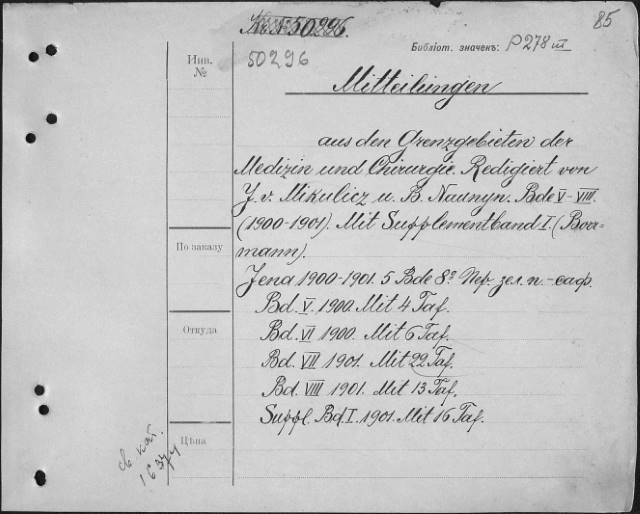 № 50296.
85
Инв. №
50296
Библіот. значекъ: P 278 III
Mitteilungen
aus den Grenzgebieten der
Medizin und Chirurgie. Redigiert von
J. v. Mikulicz u. B. Naunyn. Bde V-VIII.
(1900-1901). Mit Supplementband I. (Borr-
mann).
По заказу
Jena 1900-1901. 5 Bde 8º Пер. зел. п.-саф.
Bd. V. 1900. Mit 4 Taf.
Откуда
Bd. VI 1900. Mit 6 Taf.
Bd. VII 1901. Mit 22 Taf.
Bd. VIII 1901. Mit 13 Taf.
Suppl. Bd. I. 1901. Mit 16 Taf.
Цѣна
св. кат.